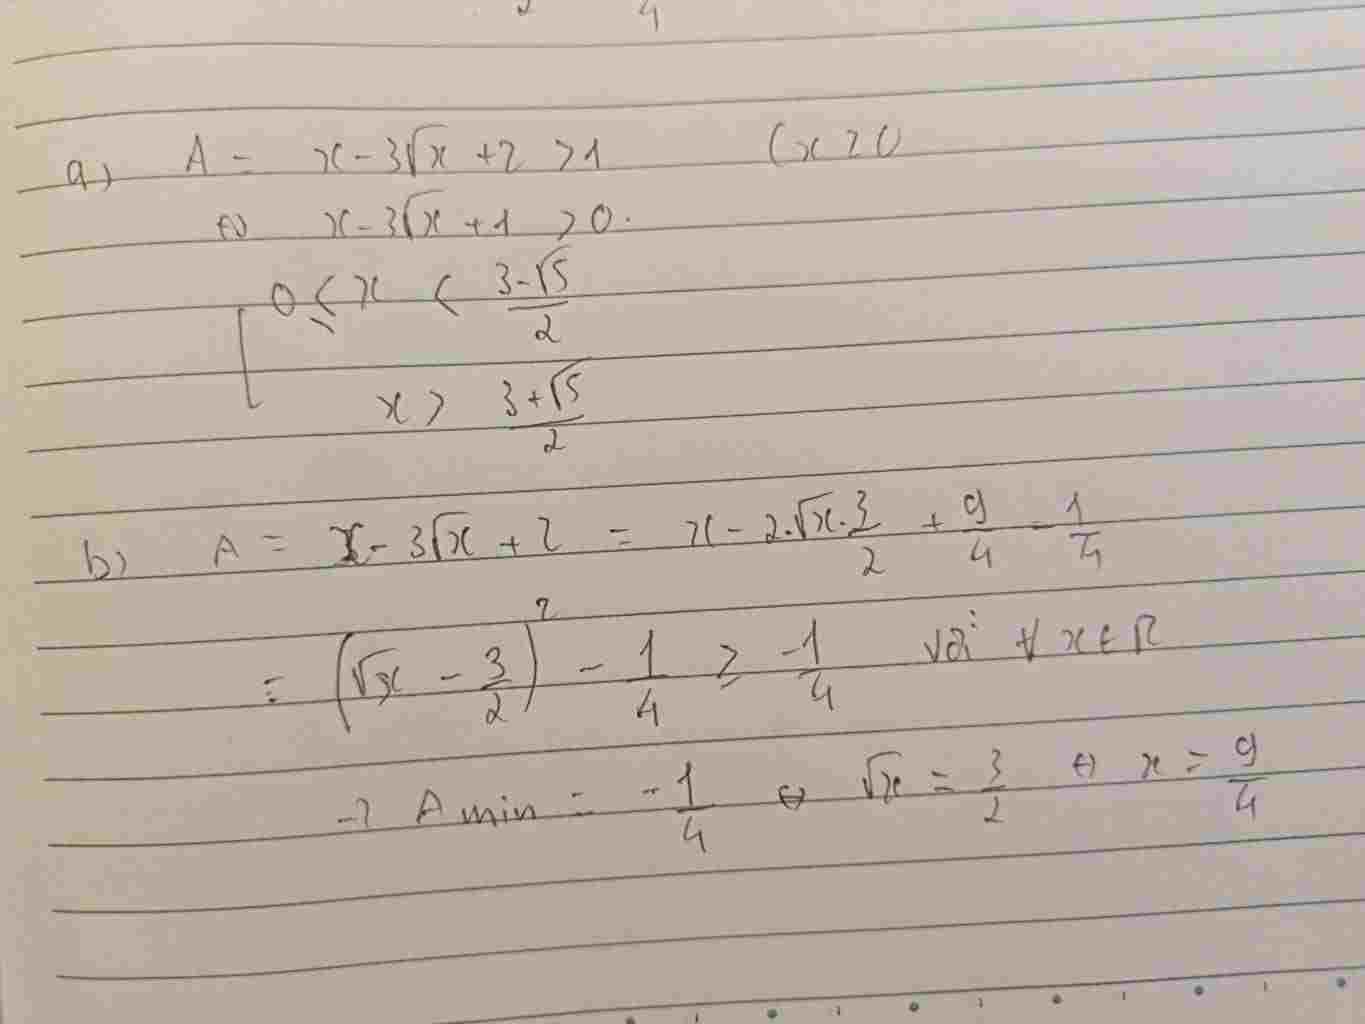 4
a) A = x - 3√x + 2 > 1 (x > 0
⇔ x - 3√x + 1 > 0.
[ 0 ≤ x < (3 - √5)/2
x > (3 + √5)/2
b) A = x - 3√x + 2 = x - 2.√x.3/2 + 9/4 - 1/4
= (√x - 3/2)² - 1/4 ≥ -1/4 với ∀ x ∈ R
→ A min = -1/4 ⇔ √x = 3/2 ⇔ x = 9/4